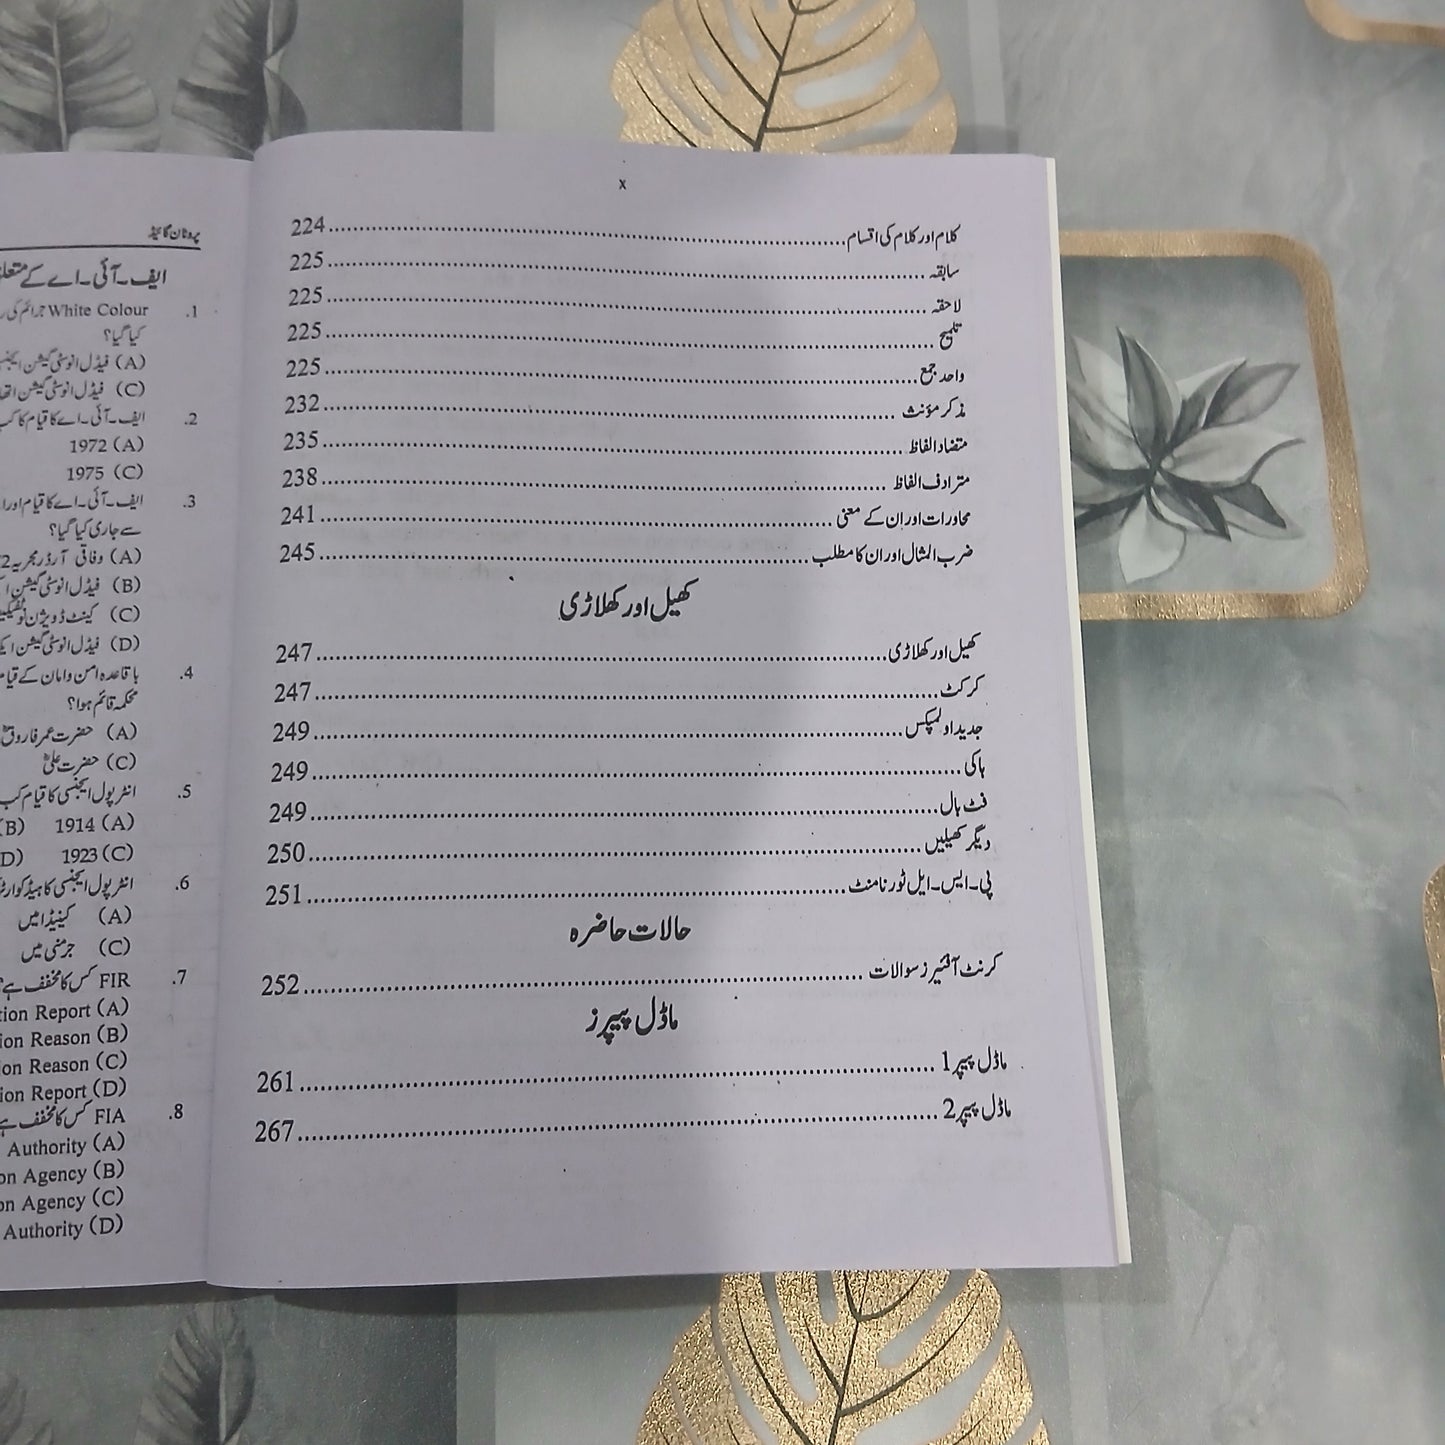 x
کلام اور کلام کی اقسام 224
سابقہ 225
لاحقہ 225
تلمیح 225
واحد جمع 225
مذکر مؤنث 232
متضاد الفاظ 235
مترادف الفاظ 238
محاورات اور ان کے معنی 241
ضرب المثال اور ان کا مطلب 245
کھیل اور کھلاڑی
کھیل اور کھلاڑی 247
کرکٹ 247
جدید اولمپکس 249
ہاکی 249
فٹ بال 249
دیگر کھیلیں 250
پی۔ایس۔ایل ٹورنامنٹ 251
حالات حاضرہ
کرنٹ آفئیرز سوالات 252
ماڈل پیپرز
ماڈل پیپر 1 261
ماڈل پیپر 2 267
ایف۔آئی۔اے کے
1. White Colour جرائم کی
کیا گیا؟
(A) فیڈل انوسٹی گیشن
(C) فیڈل انوسٹی گیشن
2. ایف۔آئی۔اے کا قیام کب
(A) 1972
(C) 1975
3. ایف۔آئی۔اے کا قیام اور
سے جاری کیا گیا؟
(A) وفاقی آرڈر مجریہ
(B) فیڈل انوسٹی گیشن
(C) کینٹ ڈویژن
(D) فیڈل انوسٹی گیشن
4. باقاعدہ امن و امان کے
محکمہ قائم ہوا؟
(A) حضرت عمر فاروقؓ
(C) حضرت علیؓ
5. انٹر پول ایجنسی کا قیام کب
(A) 1914 (B)
(C) 1923 (D)
6. انٹر پول ایجنسی کا
(A) کینیڈا میں
(C) جرمنی میں
7. FIR کس کا مخفف ہے
(A) Report
(B) Reason
(C) Reason
(D) Report
8. FIA کس کا مخفف ہے
(A) Authority
(B) Agency
(C) Agency
(D) Authority